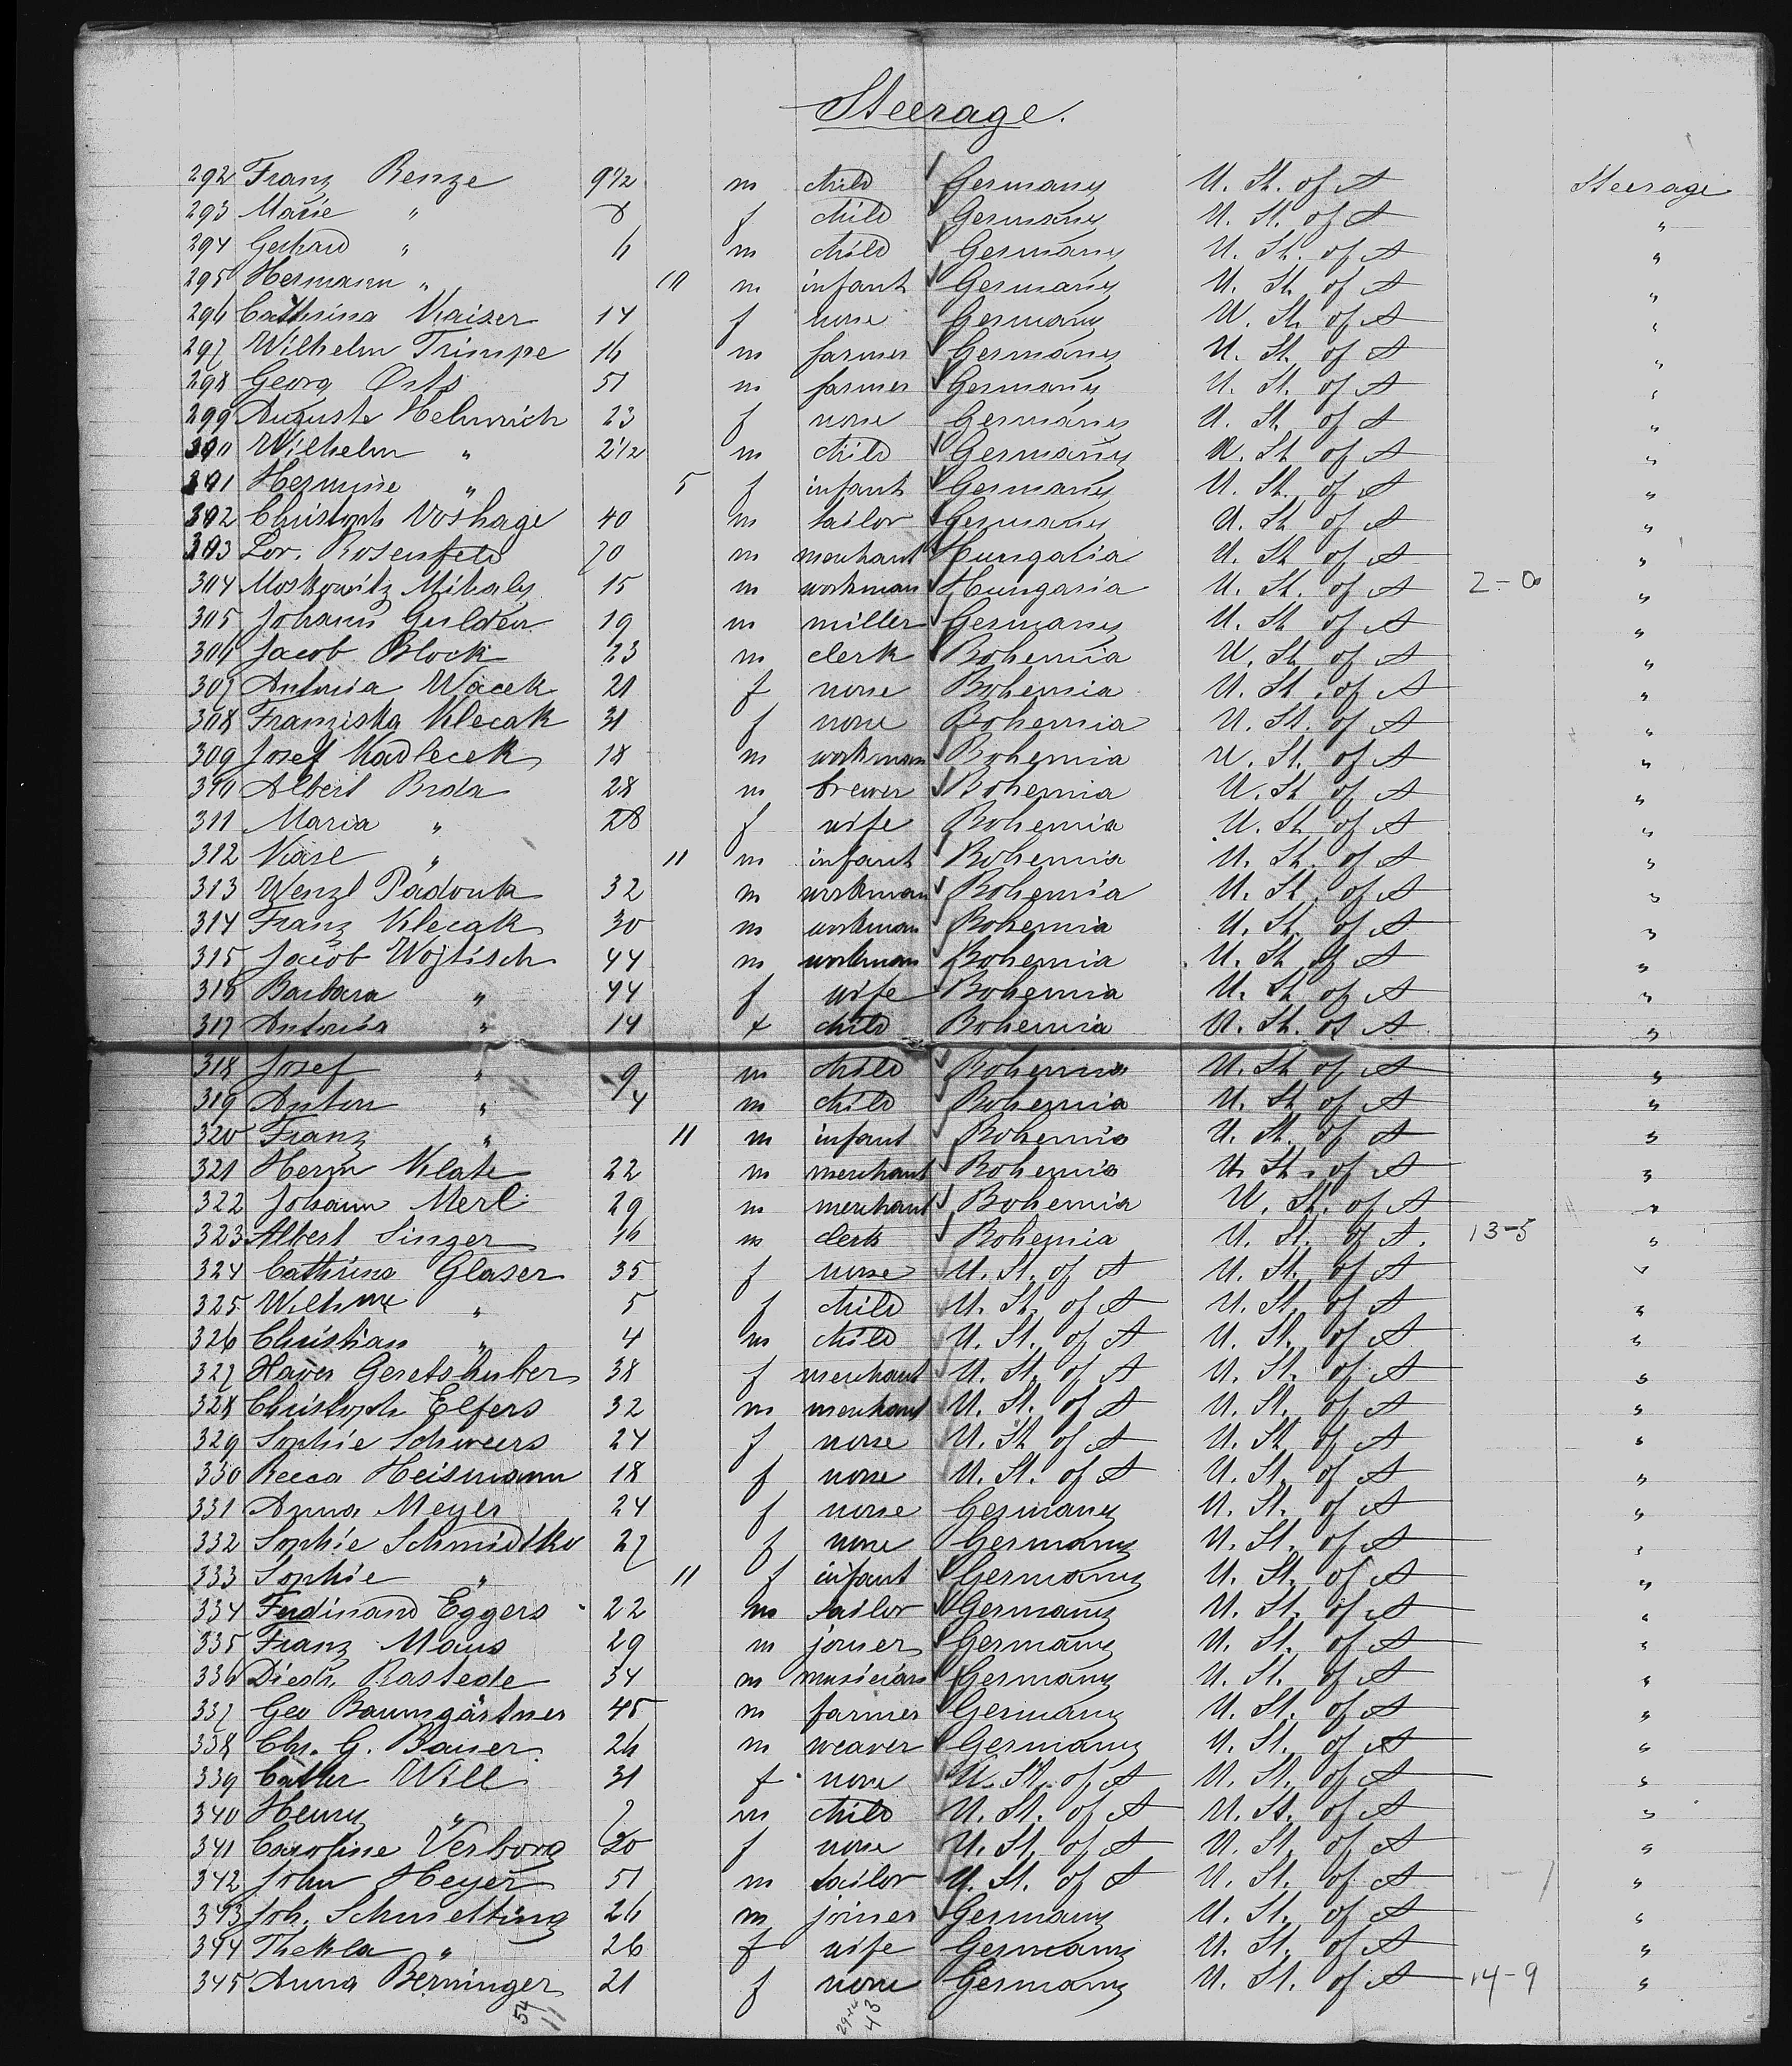 Steerage.
292 Franz Renze 9 1/2 m child Germany U. St. of A Steerage
293 Marie " 8 f child Germany U. St. of A "
294 Gerhard " 6 m child Germany U. St. of A "
295 Hermann " 10 m infant Germany U. St. of A "
296 Cathrina Kaiser 14 f none Germany U. St. of A "
297 Wilhelm Trimpe 16 m farmer Germany U. St. of A "
298 Georg 51 m farmer Germany U. St. of A "
299 Auguste Helmrich 23 f none Germany U. St. of A "
300 Wilhelm " 2 1/2 m child Germany U. St. of A "
301 Hermine " 5 f infant Germany U. St. of A "
302 Christoph Voshage 40 m tailor Germany U. St. of A "
303 Lor. Rosenfeld 70 m merchant Hungaria U. St. of A "
304 Moskowitz Mihaly 15 m workman Hungaria U. St. of A 2-0 "
305 Johann Gulden 19 m miller Germany U. St. of A "
306 Jacob Block 23 m clerk Bohemia U. St. of A "
307 Antonia Wacek 21 f none Bohemia U. St. of A "
308 Franziska Klecak 31 f none Bohemia U. St. of A "
309 Josef Kadlecek 18 m workman Bohemia U. St. of A "
310 Albert Brda 28 m brewer Bohemia U. St. of A "
311 Maria " 28 f wife Bohemia U. St. of A "
312 Karl " 11 m infant Bohemia U. St. of A "
313 Wenzl Padouk 32 m workman Bohemia U. St. of A "
314 Franz Klecak 30 m workman Bohemia U. St. of A "
315 Jacob Wojtisch 44 m workman Bohemia U. St. of A "
316 Barbara " 44 f wife Bohemia U. St. of A "
317 Antonia " 14 f child Bohemia U. St. of A "
318 Josef " 9 m child Bohemia U. St. of A "
319 Anton " 4 m child Bohemia U. St. of A "
320 Franz " 11 m infant Bohemia U. St. of A "
321 Herm Klate 22 m merchant Bohemia U. St. of A "
322 Johann Merl 29 m merchant Bohemia U. St. of A "
323 Albert Singer 16 m clerk Bohemia U. St. of A. 13-5 "
324 Cathrina Glaser 35 f none U. St. of A U. St. of A "
325 " 5 f child U. St. of A U. St. of A "
326 Christian " 4 m child U. St. of A U. St. of A "
327 Xaver Geretshuber 38 f merchant U. St. of A U. St. of A "
328 Christoph Elfers 32 m merchant U. St. of A U. St. of A "
329 Sophie Schweers 24 f none U. St. of A U. St. of A "
330 Recca Heismann 18 f none U. St. of A U. St. of A "
331 Anna Meyer 24 f none Germany U. St. of A "
332 Sophie Schmidtke 27 f none Germany U. St. of A "
333 Sophie " 11 f infant Germany U. St. of A "
334 Ferdinand Eggers 22 m tailor Germany U. St. of A "
335 Franz Maus 29 m joiner Germany U. St. of A "
336 Diedr. Rastede 34 m musician Germany U. St. of A "
337 Geo Baumgärtner 45 m farmer Germany U. St. of A "
338 Chr. G. Bauer 26 m weaver Germany U. St. of A "
339 Cathr Will 31 f none U. St. of A U. St. of A "
340 Henry " 7 m child U. St. of A U. St. of A "
341 Caroline Verborg 20 f none U. St. of A U. St. of A "
342 John Heyer 51 m tailor U. St. of A U. St. of A "
343 Joh. Schmelting 26 m joiner Germany U. St. of A "
344 Thekla " 26 f wife Germany U. St. of A "
345 Anna Berninger 21 f none Germany U. St. of A 14-9 "
54 11 29-14 43